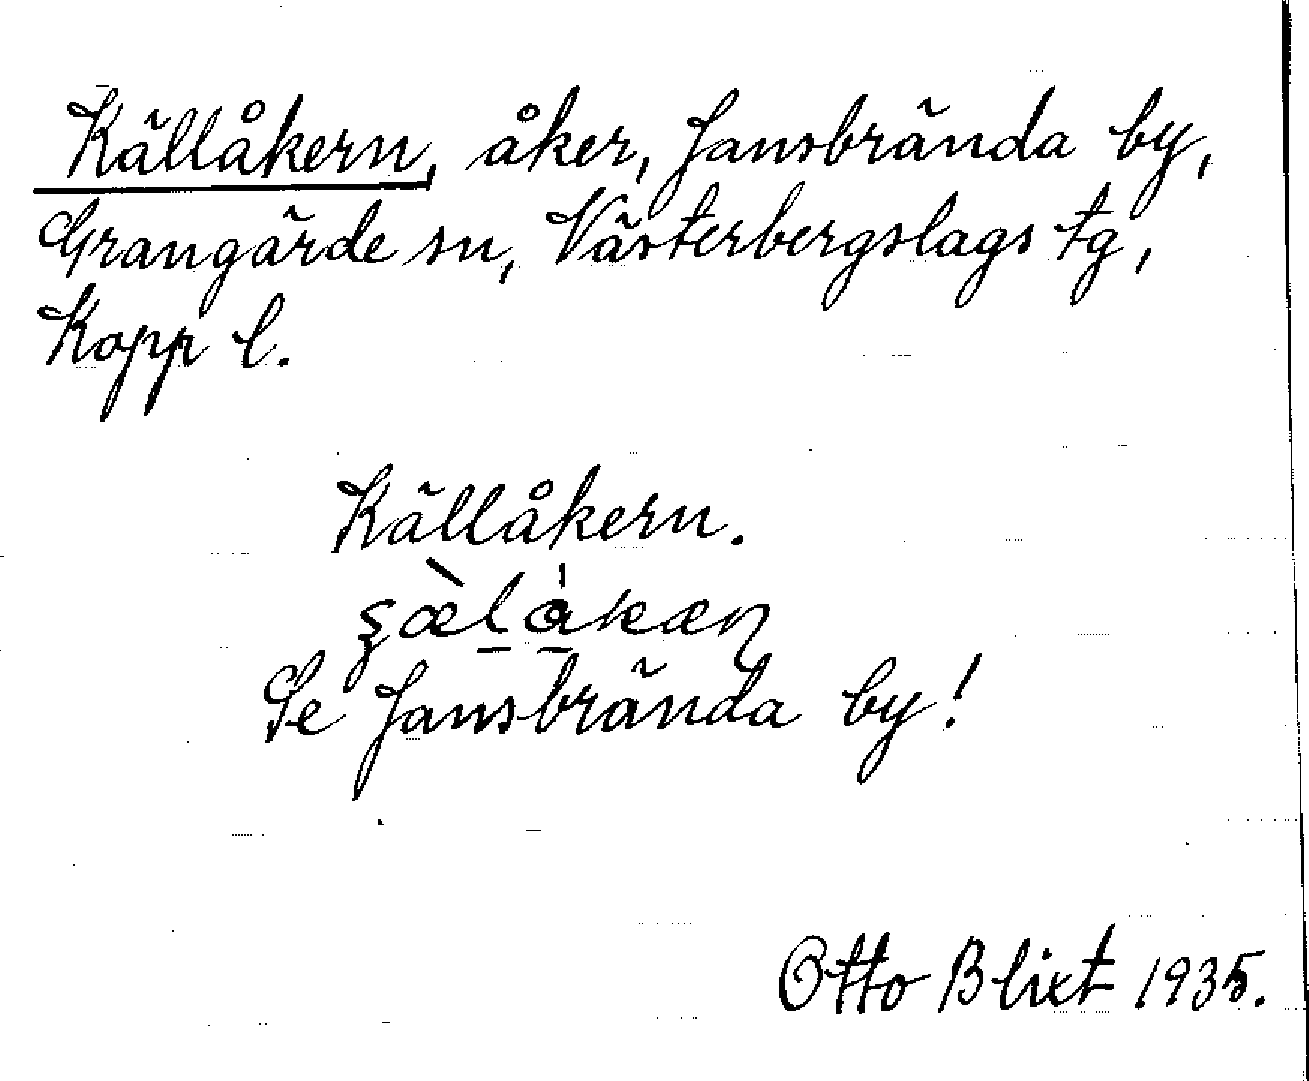 Källåkern, åker, Jansbrända by,
Grangärde sn, Västerbergslags tg,
Kopp l.
Källåkern.
Se Jansbrända by!
Otto Blixt 1935.